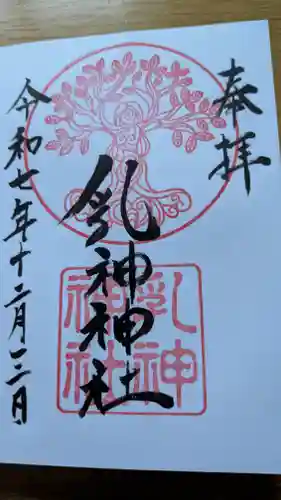 奉拝
乳神神社
乳神
神社
令和七年十二月二十一日